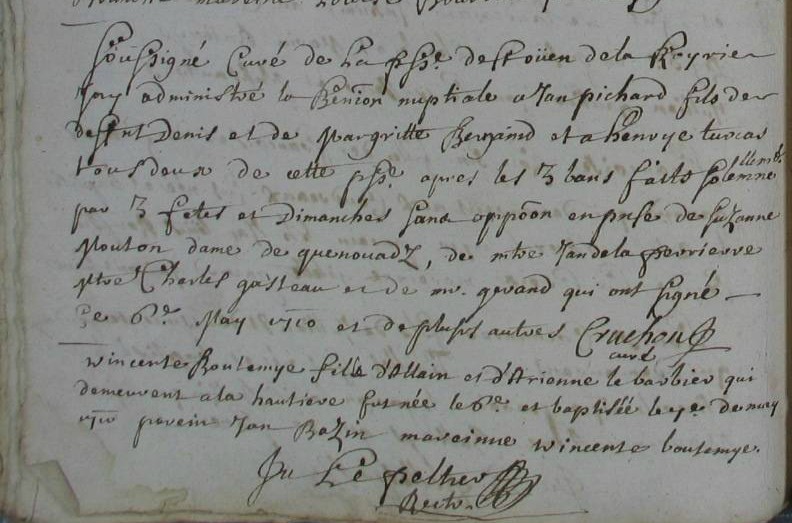 Soussigné Curé de la psse de st oüen de la Royrie
Jay administré la Benion nuptiale a Jan pichard fils de
deffnt Denis et de Margritte et a henrye lucas
tous deux de cette psse apres les 3 bans faits solemnellemt
par 3 fetes et Dimanches sans oppõon en pnse de Suzanne
Mouton dame de quenouadz, de mtre Jan de la perrierre
Mtre Charles gasteau et de mr. gerard qui ont signé
Ce 6e May 1710 et de plusrs autres Cruchon
curé
Wincente Boutemye fille d'Allain et d'Arionne le barbier qui
demeurent a la hautiere fut née le 6e et baptisée le 7e de may
1710 parein Jan Bazin mareinne wincente boutemye.
Le peltier
Rectr